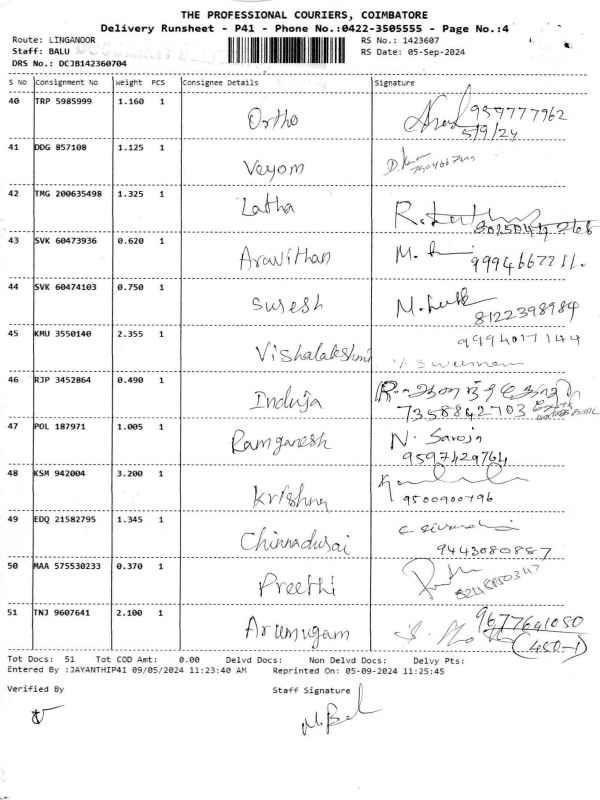 THE PROFESSIONAL COURIERS, COIMBATORE
Delivery Runsheet - P41 - Phone No.:0422-3505555 - Page No.:4
Route: LINGANOOR RS No.: 1423607
Staff: BALU RS Date: 05-Sep-2024
DRS No.: DCJB142360704
S No Consignment No Weight PCS Consignee Details Signature
40 TRP 5985999 1.160 1 Ortho 959777962
5/9/24
41 DDG 857108 1.125 1 Veyom
42 TMG 200635498 1.325 1 Latha
43 SVK 60473936 0.620 1 Aravithan M.
44 SVK 60474103 0.750 1 Suresh
8122398984
45 KMU 3550140 2.355 1 Vishalakshmi
46 RJP 3452864 0.490 1 Induja
7358842703
47 POL 187971 1.005 1 Ramganesh N. Saroja
9597429764
48 KSM 942004 3.200 1 Krishna
9500900796
49 EDQ 21582795 1.345 1 Chinnadurai
9443080887
50 MAA 575530233 0.370 1 Preethi
51 TNJ 9607641 2.100 1 Arumugam 9677641050
(450-1)
Tot Docs: 51 Tot COD Amt: 0.00 Delvd Docs: Non Delvd Docs: Delvy Pts:
Entered By :JAYANTHIP41 09/05/2024 11:23:40 AM Reprinted On: 05-09-2024 11:25:45
Verified By Staff Signature